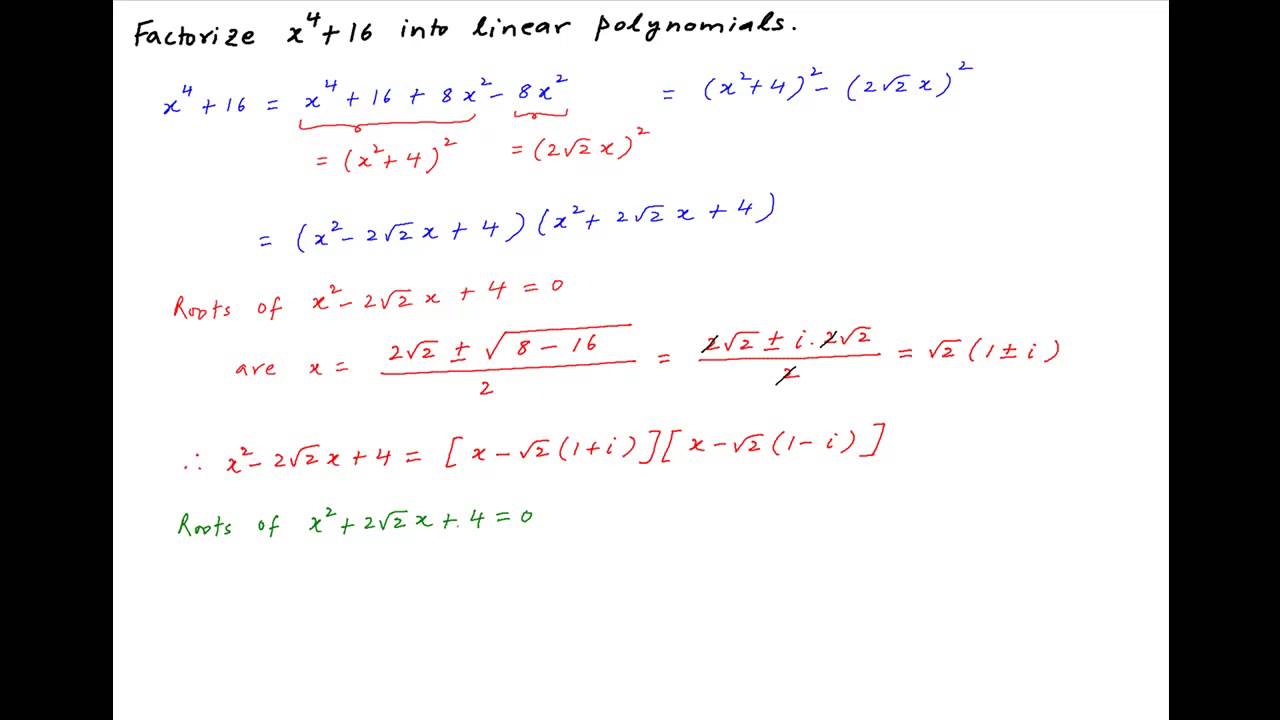 Factorize x⁴ + 16 into linear polynomials.
x⁴ + 16 = x⁴ + 16 + 8x² − 8x² = (x² + 4)² − (2√2 x)²
= (x² + 4)² = (2√2 x)²
= (x² − 2√2 x + 4) (x² + 2√2 x + 4)
Roots of x² − 2√2 x + 4 = 0
are x = (2√2 ± √(8 − 16)) / 2 = (2√2 ± i · 2√2) / 2 = √2 (1 ± i)
∴ x² − 2√2 x + 4 = [x − √2 (1 + i)] [x − √2 (1 − i)]
Roots of x² + 2√2 x + 4 = 0